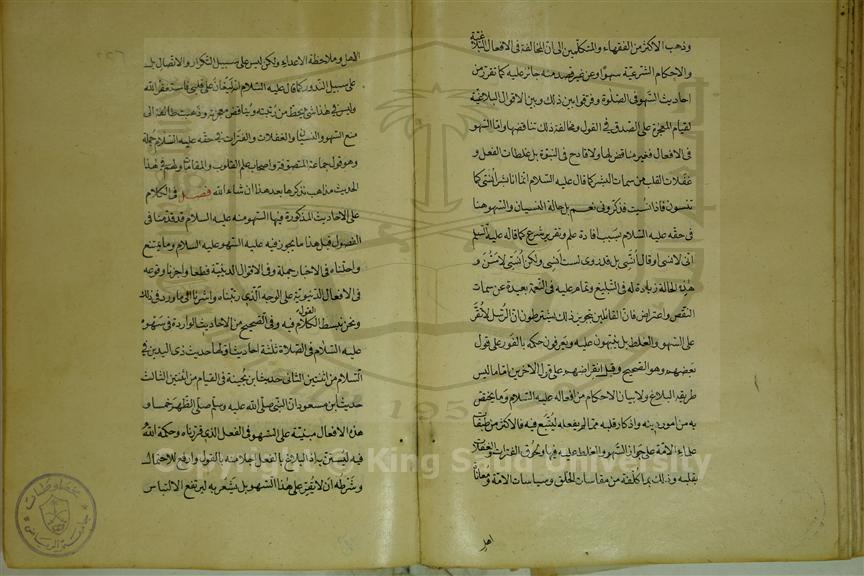 وذهب الاكثر من الفقهاء والمتكلمين الى ان المخالفة فى الافعال البلاغية
والاحكام الشرعية سهوا وعن غير قصد منه جائز عليه كما تقرر من
احاديث السهو فى الصلوة وفرقوا بين ذلك وبين الاقوال البلاغية
لقيام المعجزة على الصدق فى القول ومخالفة ذلك تناقضها واما السهو
فى الافعال فغير مناقض لها ولا قادح فى النبوة بل غلطات الفعل و
غفلات القلب من سمات البشر كما قال عليه السلام انما انا بشر انسى كما
تنسون فاذا نسيت فذكرونى نعم بل حالة النسيان والسهو هنا
فى حقه عليه السلام سبب افادة علم وتقرير شرع كما قال عليه السلام
انى لانسى او قال انسى بل قد روى لست انسى ولكن انسى لاسن و
هذه الحالة زيادة له فى التبليغ وتمام عليه فى النعمة بعيدة عن سمات
النقص واعتراض فان القائلين بتجويز ذلك يشترطون ان الرسل لا تقر
على السهو والغلط بل ينبهون عليه ويعرفون حكمه بالفور على قول
بعضهم وهو الصحيح وقبل انقراضهم على قول الاخرين اما ما ليس
طريقه البلاغ ولا بيان الاحكام من افعاله عليه السلام وما يختص
به من امور دينه واذكار قلبه مما لم يفعله ليتبع فيه فالاكثر من طبقات
علماء الامة على جواز السهو والغلط عليه فيها ولحوق الفترات والغفلات
بقلبه وذلك بما كلفه من مقاسات الخلق وسياسات الامة ومعاناة
اهل
الاهل وملاحظة الاعداء ولكن ليس على سبيل التكرار والاتصال بل
على سبيل الندور كما قال عليه السلام انه ليغان على قلبى فاستغفر الله
وليس فى هذا شئ يحط من رتبته ويناقض معجزته وذهبت طائفة الى
منع السهو والنسيان والغفلات والفترات فى حقه عليه السلام جملة
وهو قول جماعة المتصوفة واصحاب علم القلوب والمقامات ولهم فى هذا
الحديث مذاهب نذكرها بعد هذا ان شاء الله فصل فى الكلام
على الاحاديث المذكورة فيها السهو منه عليه السلام قد قدمنا فى
الفصول قبل هذا ما يجوز فيه عليه السهو عليه السلام وما يمتنع
واحلناه فى الاخبار جملة وفى الاقوال الدينية قطعا واجزنا وقوعه
فى الافعال الدينوية على الوجه الذى رتبناه واشرنا الى ما ورد فى ذلك
ونحن نبسط الكلام فيه وفى الصحيح من الاحاديث الواردة فى سهوه
القول
عليه السلام فى الصلاة ثلثة احاديث اولها حديث ذى اليدين فى
السلام من اثنتين الثانى حديث ابن بحينة فى القيام من اثنتين الثالث
حديث ابن مسعود ان النبى صلى الله عليه وسلم صلى الظهر خمسا و
هذه الافعال مبنية على السهو فى الفعل الذى قررناه وحكمة الله
فيه ليستن به اذ البلاغ بالفعل اجلا منه بالقول وارفع للاحتمال
وشرطه ان لا يقر على هذا السهو بل يشعر به ليرتفع الالتباس
Copyright © King Saud University
1957